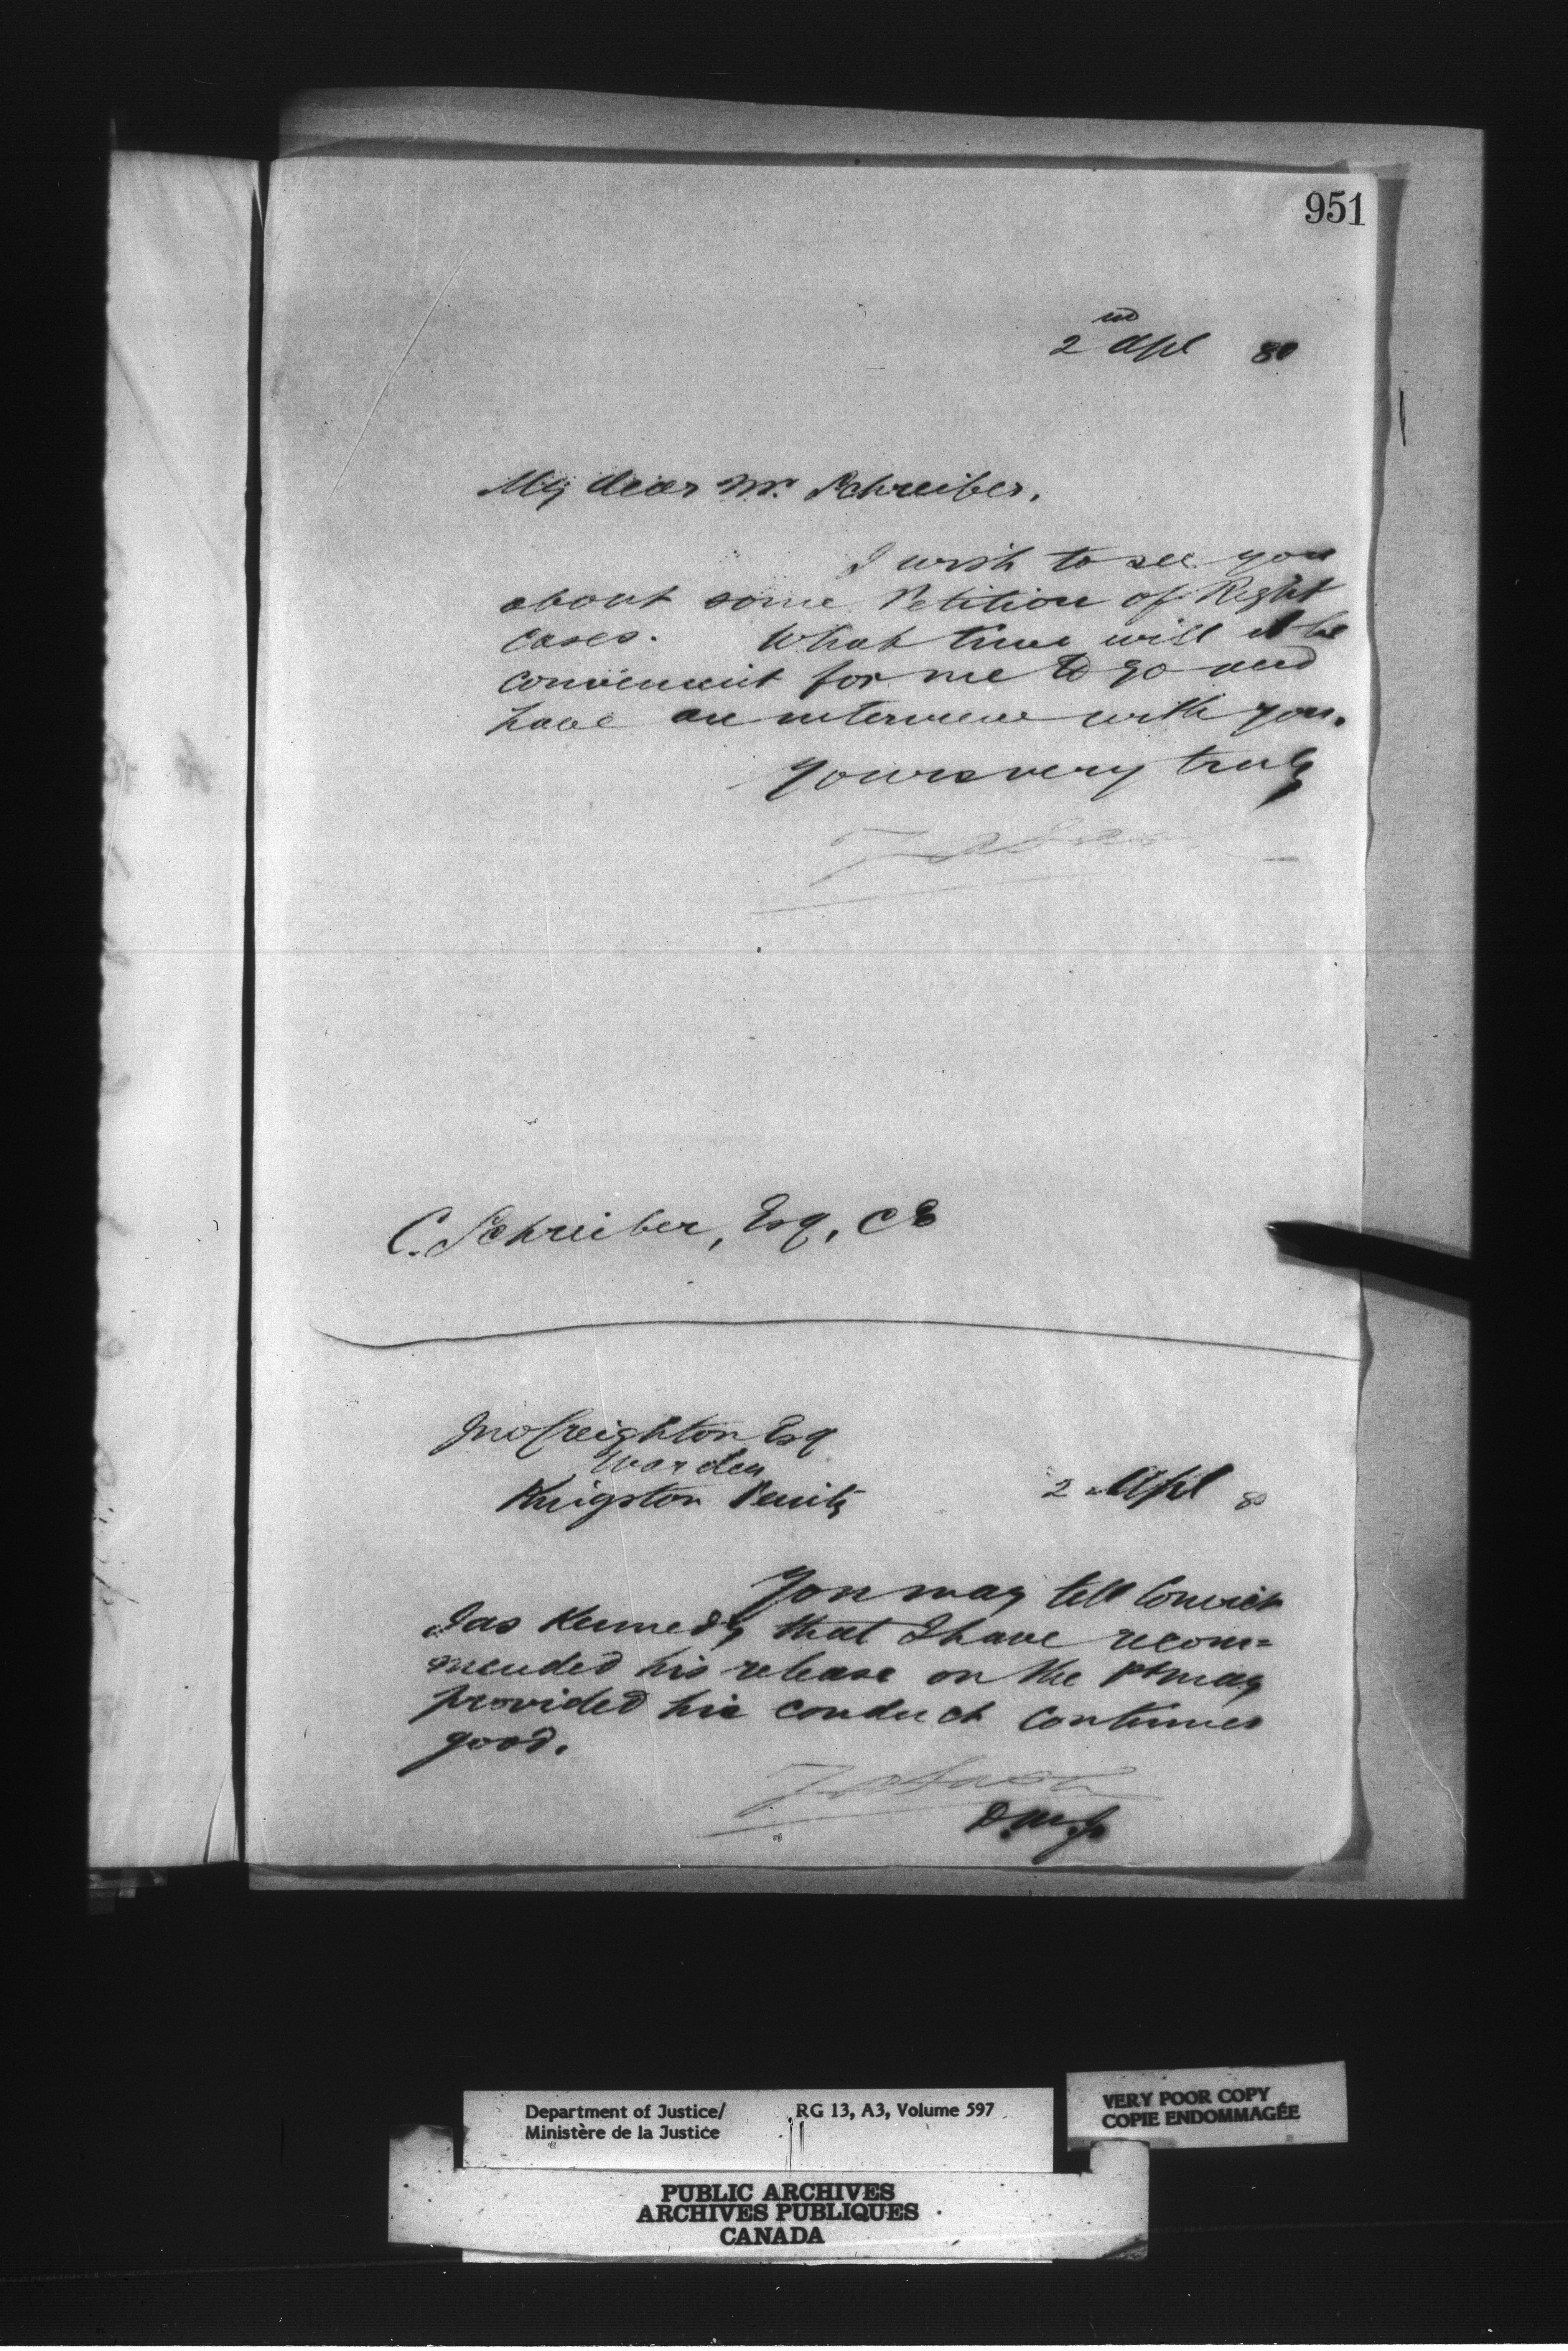 951
2nd Apl 80
My dear Mr. Schreiber,
I wish to see you
about some Petition of Right
cases. What time will it be
convenient for me to go and
have an interview with you.
Yours very truly
C. Schreiber, Esq, CE
Jno Creighton Esq
Warden
Kingston Penity
2 Apl 80
You may tell Convict
Jas Kennedy that I have recom=
mended his release on the 1st May
provided his conduct continues
good.
D.M.J.
Department of Justice/ RG 13, A3, Volume 597
Ministère de la Justice
VERY POOR COPY
COPIE ENDOMMAGÉE
PUBLIC ARCHIVES
ARCHIVES PUBLIQUES
CANADA